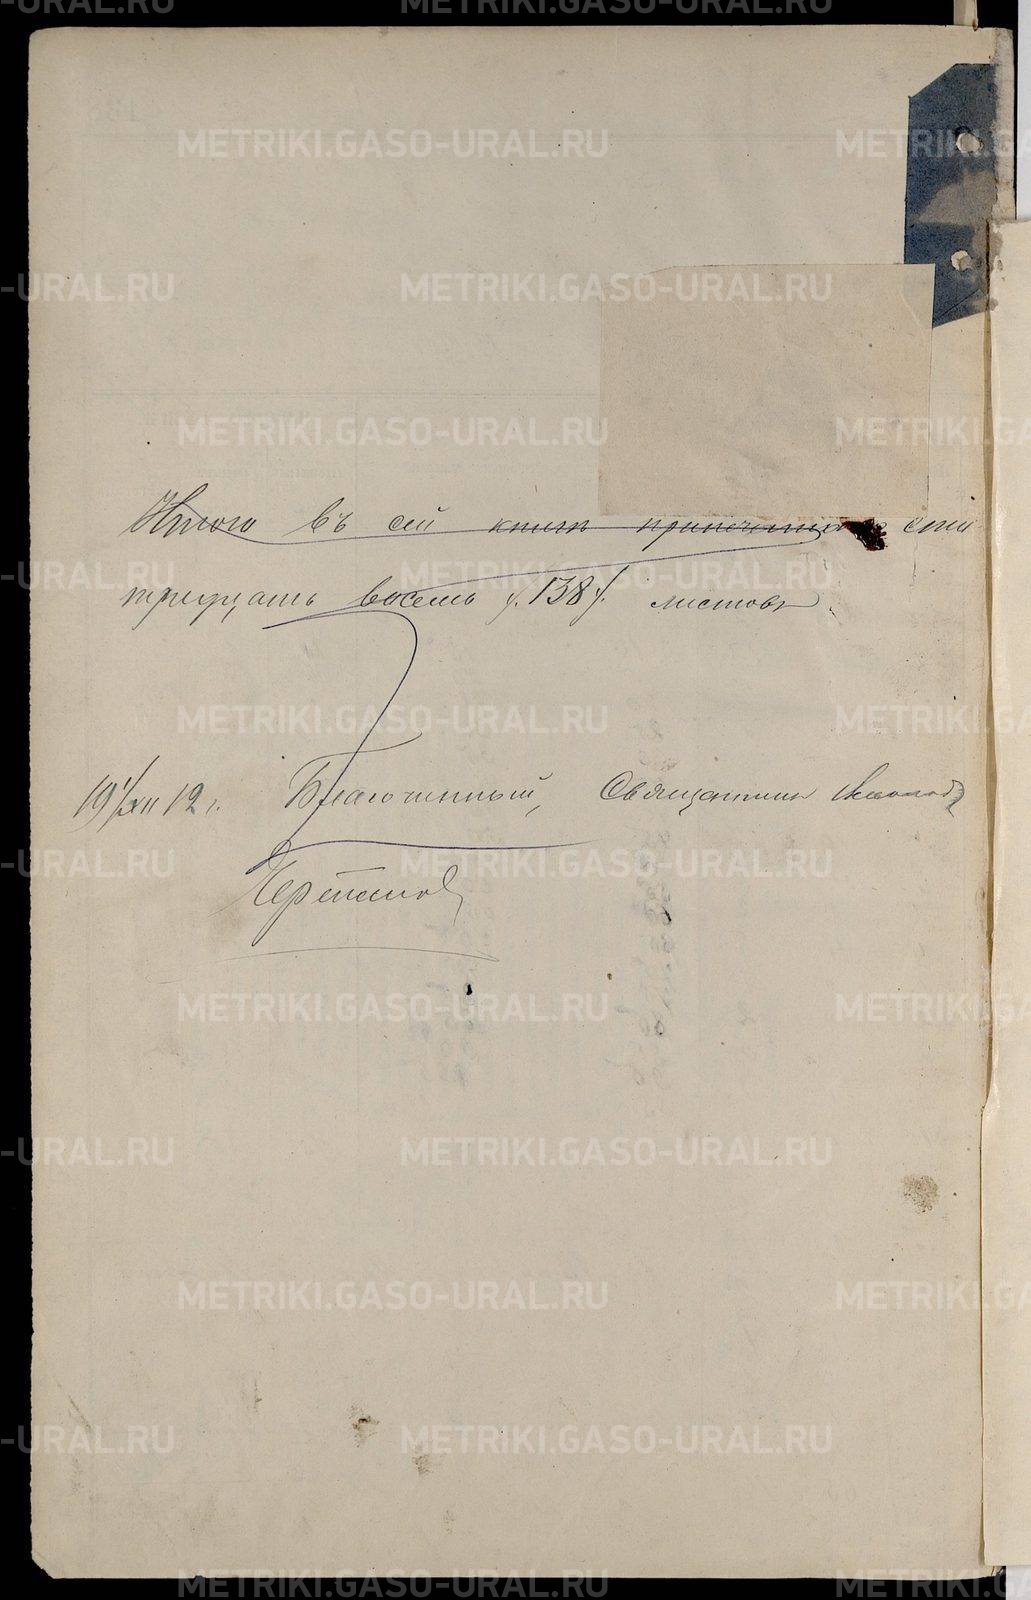 Итого въ сей книгѣ припечатано сто
тридцать восемь /.138/. листовъ.
19 1/XII 12 г. Благочинный, Священникъ
METRIKI.GASO-URAL.RU